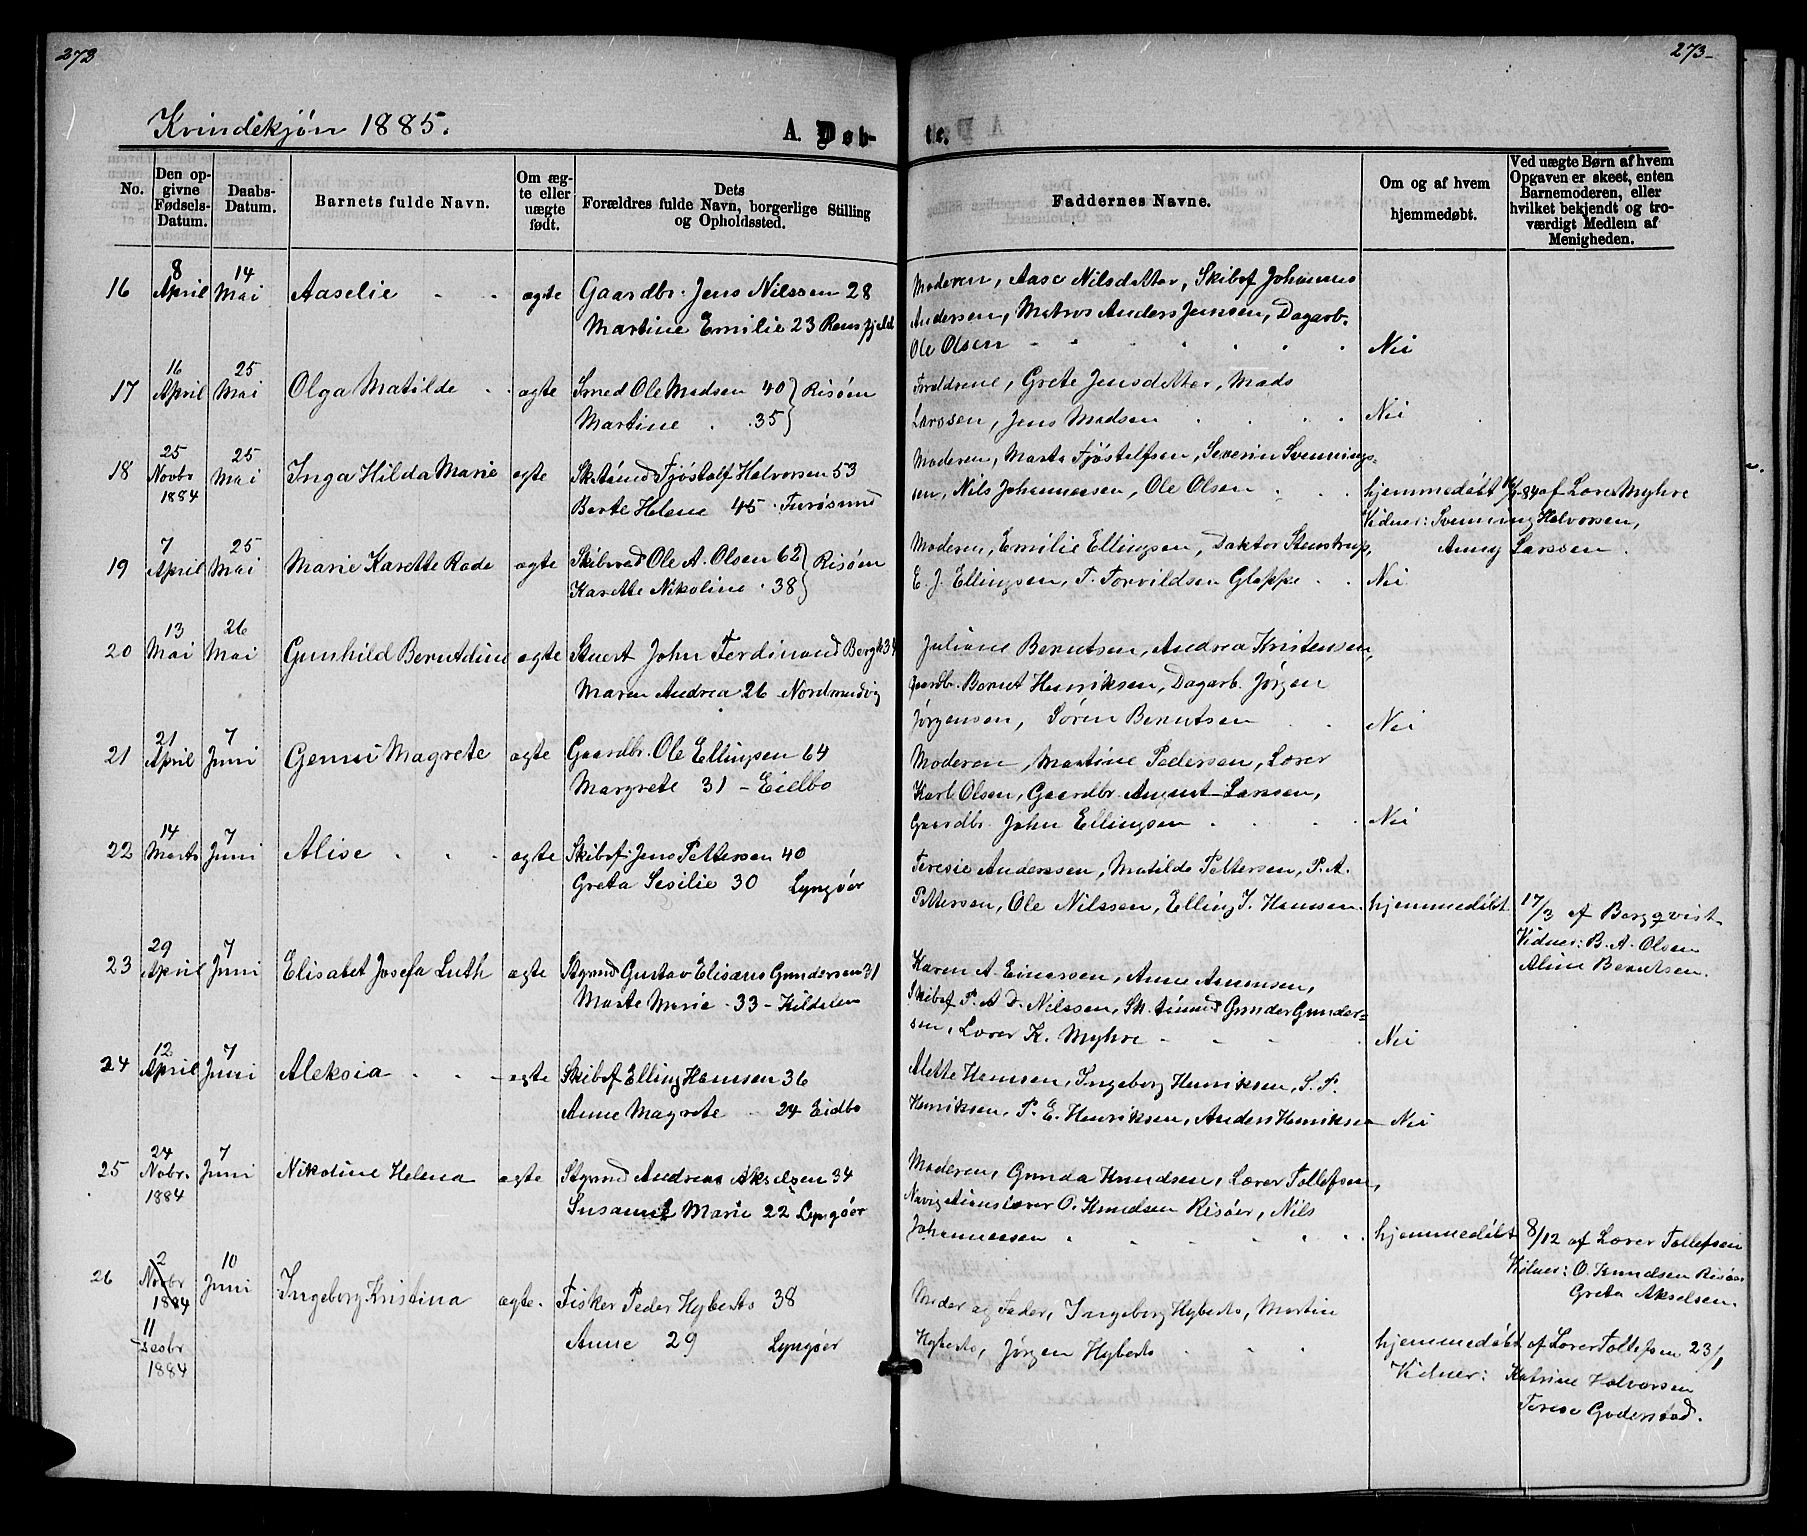 272
273
Kvindekjøn 1885.
A. Døb-
te.
No.
Den op-
givne
Fødsels-
Datum.
Daabs-
Datum.
Barnets fulde Navn.
Om æg-
te eller
uægte
født.
Dets
Forældres fulde Navn, borgerlige Stilling
og Opholdssted.
Faddernes Navne.
Om og af hvem
hjemmedøbt.
Ved uægte Børn af hvem
Opgaven er skeet, enten
Barnemoderen, eller
hvilket bekjendt og tro-
værdigt Medlem af
Menigheden.
16 8 April 14 Mai Aaselie ægte Gaardbr. Jens Nilssen 28
Martine Emilie 23 Rønsfjeld
Moderen, Aase Nilsdatter, Skibsf Johannes
Andersen, Matros Anders Jensen, Dagarb.
Ole Olsen Nei
17 16 April 25 Mai Olga Matilde ægte Smed Ole Madsen 40 } Risøen
Martine 35
Forældrene, Grete Jensdatter, Mads
Larssen, Jens Madsen Nei
18 25 Novbr 1884 25 Mai Inga Hilda Marie ægte Sktømmd Fjøstolf Halvorsen 53
Berte Helene 45 Furøsund
Moderen, Marta Fjøstolfsen, Severin Svennings-
sen, Nils Johannessen, Ole Olsen hjemmedøbt 84 af Lærer Myhre
Vidner: Svenning Halvorsen,
Anny Larssen.
19 7 April 25 Mai Marie Karette Rode ægte Skibsrd Ole A. Olsen 62 } Risøen
Karette Nikoline 38
Moderen, Emilie Ellingsen, Doktor Stenstrup,
E. J. Ellingsen, T. Torvildsen Gloppe Nei
20 13 Mai 26 Mai Gunhild Berntdine ægte Stuert John Ferdinand Bergh 34
Maren Andrea 26 Nordsundvig
Juliane Berntsen, Andrea Kristensen,
Gaardbr. Bernt Henriksen, Dagarb. Jørgen
Jørgensen, Søren Berntsen Nei
21 21 April 7 Juni Gemei Magrete ægte Gaardbr. Ole Ellingsen 64
Margrete 31 - Eidbo
Moderen, Martine Pedersen, Lærer
Karl Olsen, Gaardbr. August Larssen,
Gaardbr. John Ellingsen Nei
22 14 Marts 7 Juni Alise ægte Skibsf. Jens Pettersen 40
Greta Sesilie 30 Lyngøer
Teresie Anderssen, Matilde Pettersen, P. A.
Pettersen, Ole Nilssen, Elling J. Hansen. hjemmedøbt 17/3 af Borgqvist
Vidner: B. A. Olsen
Aline Berntsen.
23 29 April 7 Juni Elisabet Josefa Luth ægte Stymd Gustav Elisæus Gundersen 31
Marte Marie - 33 - Kildalen
Karen A. Einersen, Anne Asmunsen,
Skibsf P. A. D. Nilssen, Sk. tømmd Gunder Gunder-
sen, Lærer K. Myhre Nei
24 12 April 7 Juni Aleksia ægte Skibsf Elling Hansen 36
Anne Magrete 24 Eidbo
Alette Hansen, Ingeborg Henriksen, S. P.
Henriksen, P. E. Henriksen, Anders Henriksen Nei
25 24 Nobr. 1884 7 Juni Nikoline Helena ægte Stymd Andreas Akselsen 34
Susanne Marie 22 Lyngøer
Moderen, Gunda Knudsen, Lærer Tollefsen,
Navigationslærer O. Knudsen Risøer, Nils
Johannessen hjemmedøbt 8/12 af Lærer Tollefsen
Vidner: O. Knudsen Risøer
Greta Akselsen.
26 2 Novbr 1884 11 Desbr 1884 10 Juni Ingeborg Kristina ægte. Fisker Peder Hyberts 38
Anne 29 Lyngøer
Moder og Fader, Ingeborg Hyberts, Martin
Hyberts, Jørgen Hyberts hjemmedøbt af Lærer Tollefsen 23/1
Vidner: Katrine Halvorsen
Terese Goderstad.